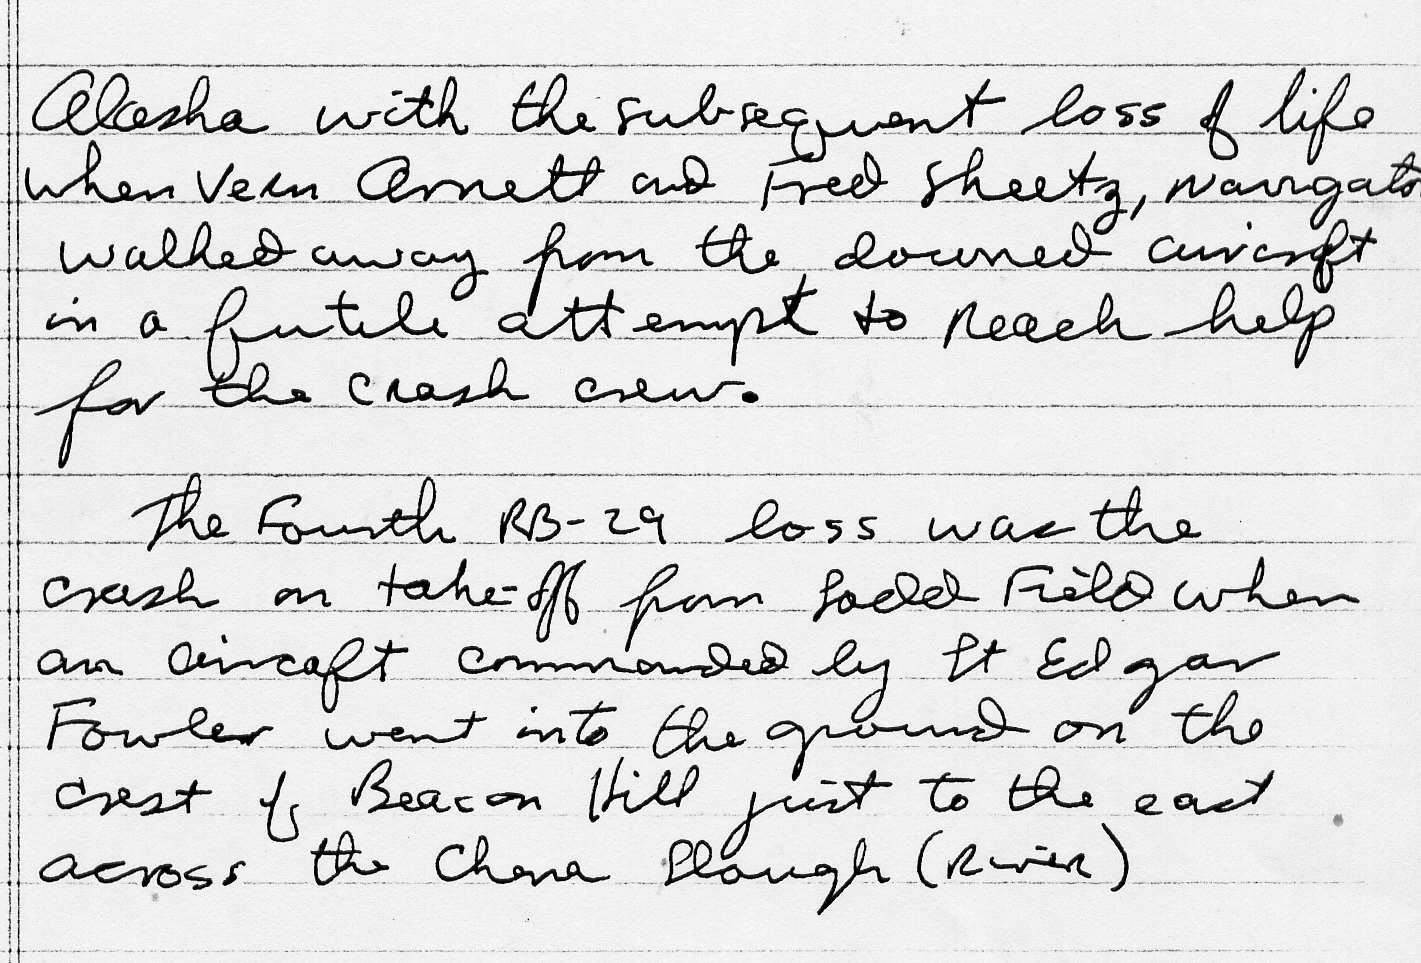 Alaska with the subsequent loss of life
when Vern Arnett and Fred Sheetz, navigator
walked away from the downed aircraft
in a futile attempt to reach help
for the crash crew.
The Fourth RB-29 loss was the
crash on take-off from Ladd Field when
an aircraft commanded by Lt Edgar
Fowler went into the ground on the
crest of Beacon Hill just to the east
across the Chena Slough (River)